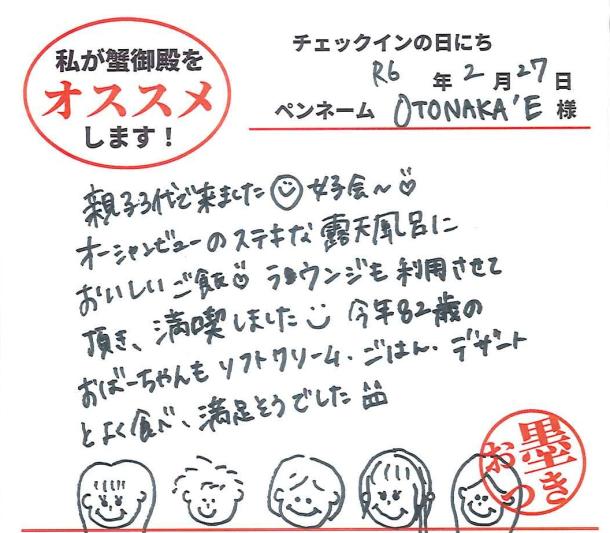 私が蟹御殿を
オススメ
します！
チェックインの日にち
R6 年 2 月 27 日
ペンネーム OTONAKA'E 様
親子3代で来ました 女子会～
オーシャンビューのステキな露天風呂に
おいしいご飯 ラウンジも利用させて
頂き、満喫しました 今年82歳の
おばーちゃんもソフトクリーム・ごはん・デザート
とよく食べ、満足そうでした
お墨つき